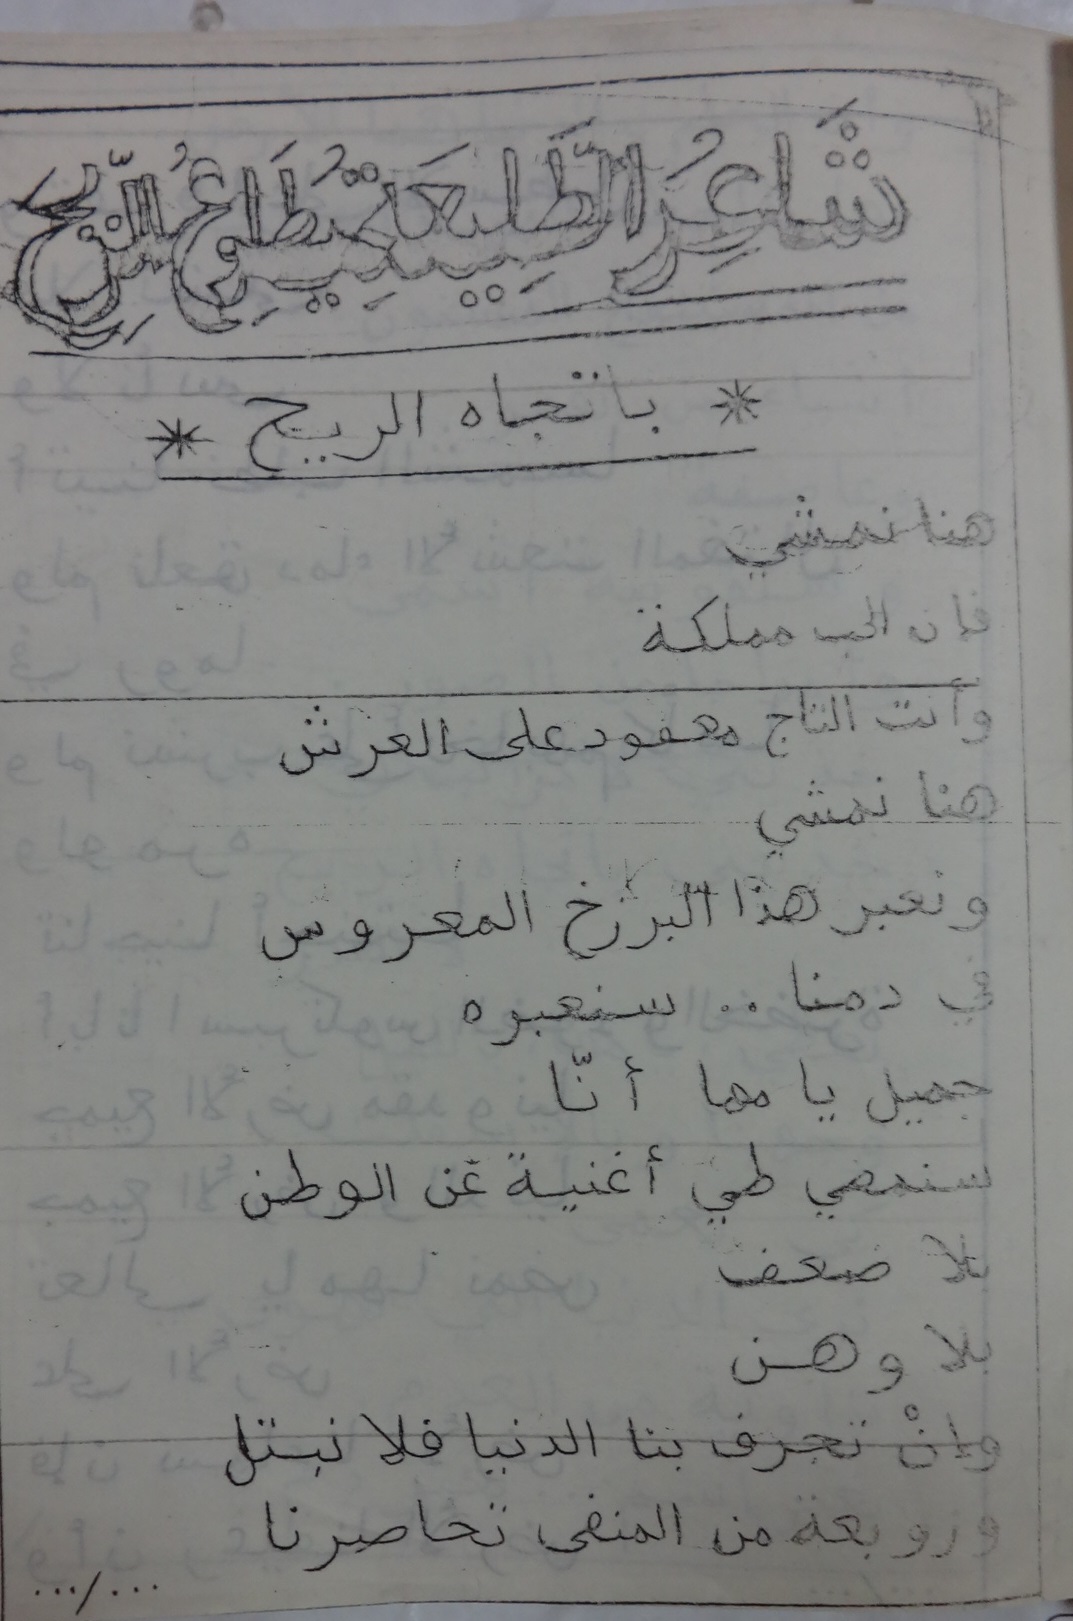 شَاعِرُ الطَّلِيعَة يُطَاوِعُ الرِّيحَ
* باتجاه الريح *
هنا نمشي
فإن الحب مملكة
وأنت التاج معقود على العرش
هنا نمشي
ونعبر هذا البرزخ المعروس
في دمنا .. سنعبره
جميل يا مها أنّا
سنمضي طي أغنية عن الوطن
بلا ضعف
بلا وهن
وإنْ تجرف بنا الدنيا فلا نبتل
وزوبعة من المنفى تحاصرنا
.../...